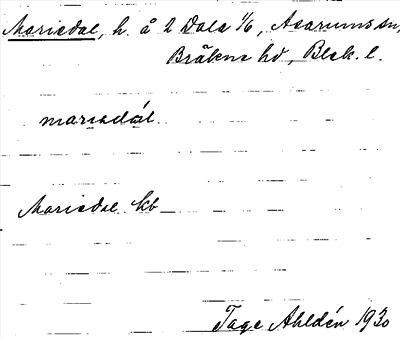 Mariedal, h. å 2 Dala 1/6, Asarums sn,
Bräkne hd, Blek. l.
marıedál.
Mariedal kb
Tage Ahldén 1930